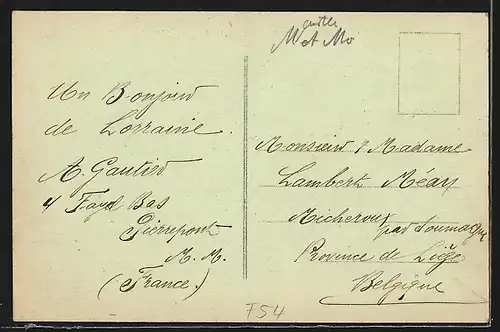 Un Bonjour
de Lorraine.
A. Gautier
4 Fayel Bas
Pierrepont
M. M.
(France.)
M et Mo
Monsieur & Madame
Lambert Méan
Micheroux
par Soumagne
Province de Liège
Belgique
F54